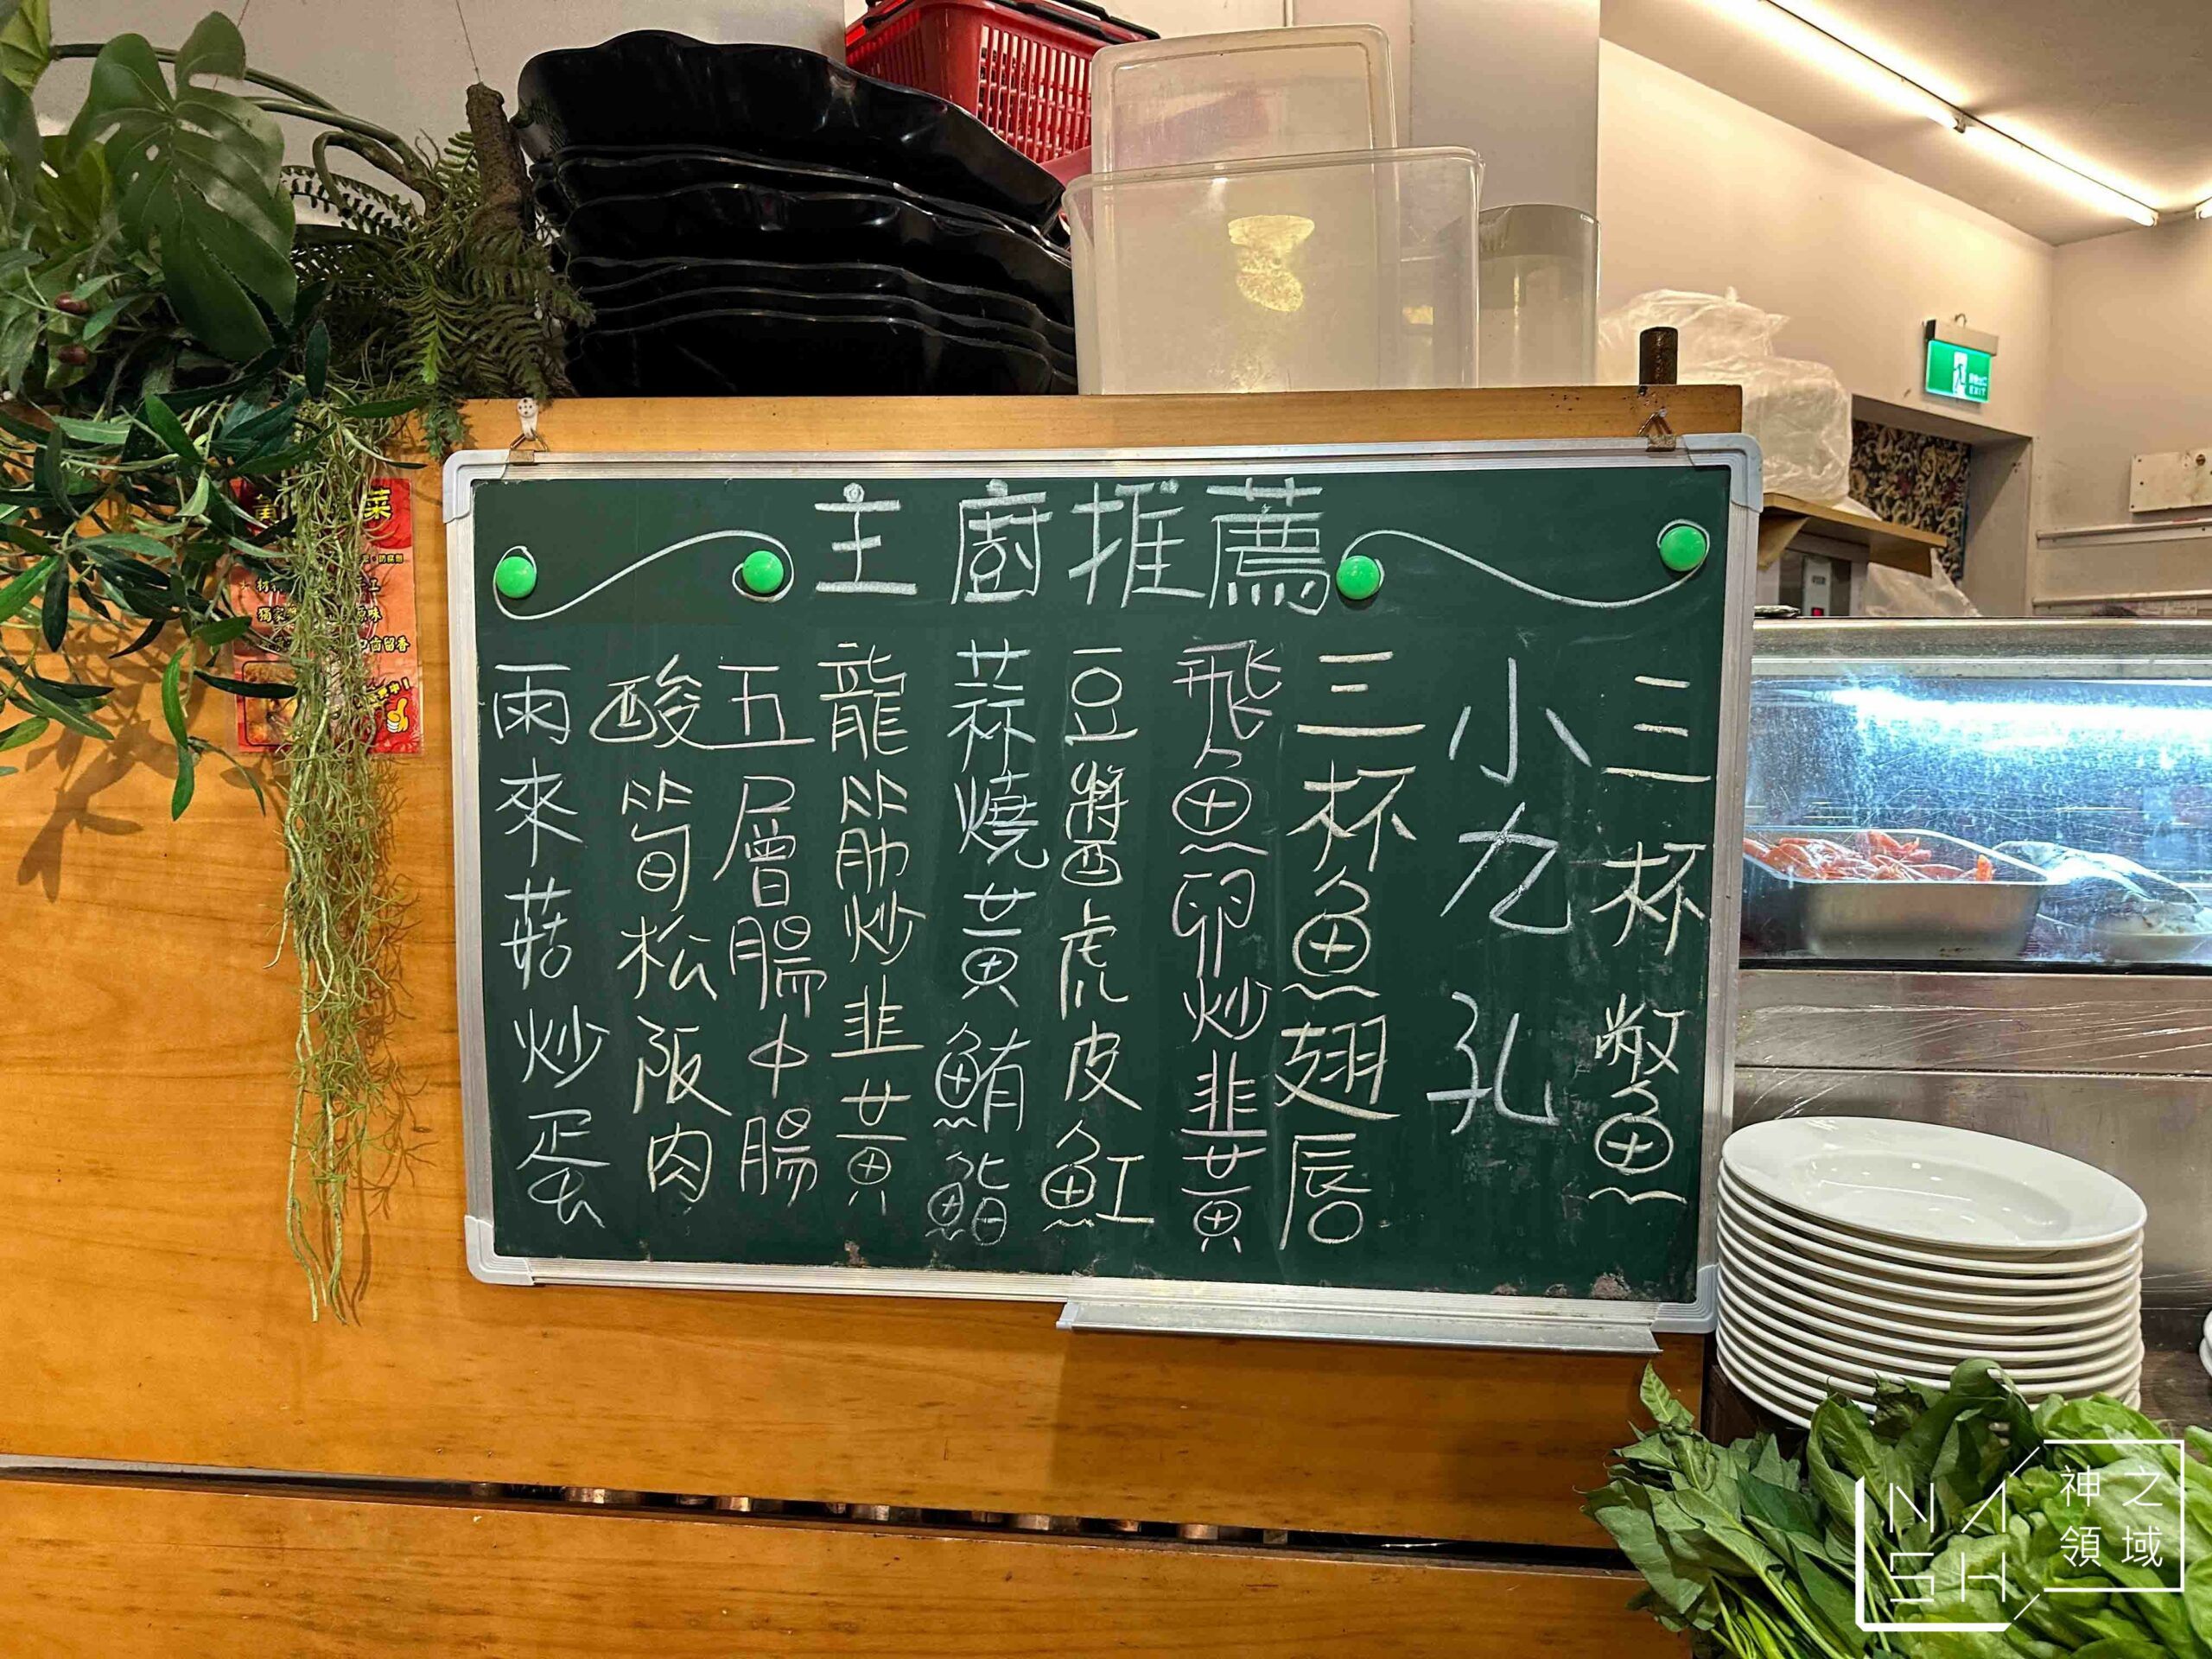 主廚推薦
三杯鱉
小九孔
三杯魚翅唇
飛魚卵炒韭黃
豆醬虎皮魟
蒜燒黃鮪鮨
龍筋炒韭黃
五層腸中腸
酸筍松阪肉
雨來菇炒蛋
菜
留香
EXIT
NASH
神之
領域